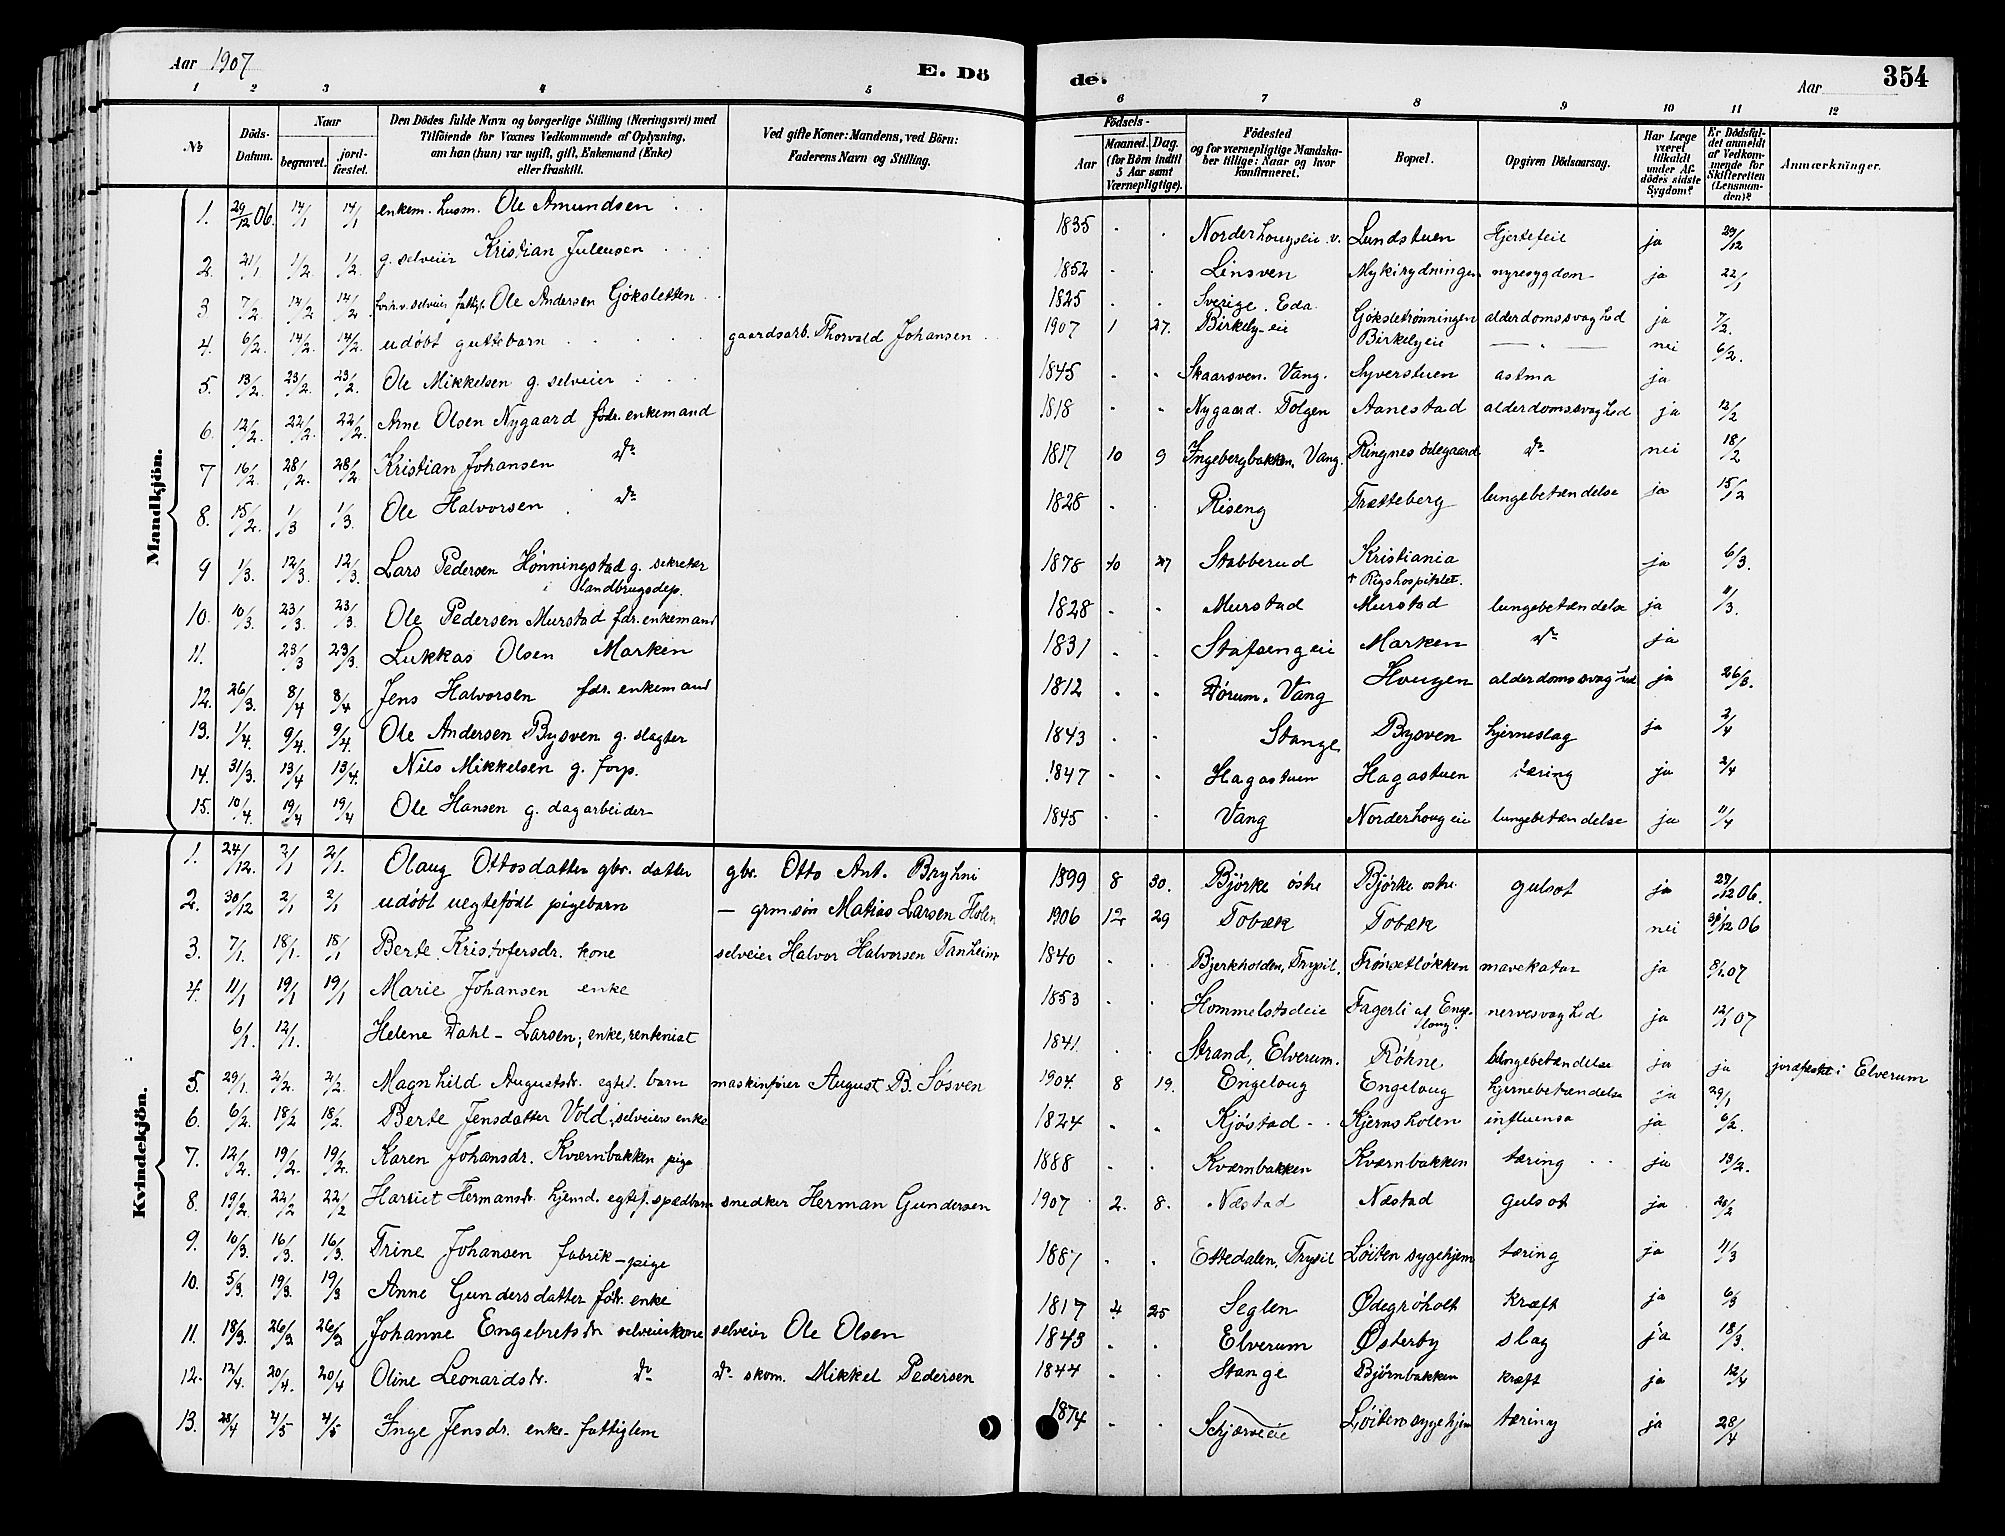 Aar 1907
E. Dö
de.
Aar
354
1 2 3 4 5 6 7 8 9 10 11 12
No
Döds-Datum.
Naar
begravet. jordfæstet.
Den Dödes fulde Navn og borgerlige Stilling (Næringsvei) med
Tilföiende for Voxnes Vedkommende af Oplysning,
om han (hun) var ugift, gift, Enkemand (Enke)
eller fraskilt.
Ved gifte Koner: Mandens, ved Börn:
Faderens Navn og Stilling.
Födsels-
Aar Maaned. Dag.
(for Börn indtil 5 Aar samt Værnepligtige).
Födested
og for værnepligtige Mandskaber tillige: Naar og hvor konfirmeret.
Bopæl.
Opgiven Dödsaarsag.
Har Læge været tilkaldt under Afdödes sidste Sygdom?
Er Dödsfaldet anmeldt af Vedkommende for Skifteretten (Lensmanden)?
Anmærkninger.
Mandkjön.
1. 29/12 06. 14/1 14/1 enkem. husm. Ole Amundsen 1835 Norderhougseie v. Lundstuen Hjertefeil ja 29/12
2. 21/1 1/2. 1/2. g. selveier Kristian Juleusen 1852 Linsven Mykirydningen nyresygdom ja 22/1
3 7/2. 14/2 14/2 selveier fattigl. Ole Andersen Gjöksletten 1825 Sverige. Eda Gjöksletrønningen alderdomssvaghed ja 7/2.
4. 6/2. 14/2. 14/2. udöbt guttebarn gaardsarb. Thorvald Johansen 1907 1 27. Birkely-eie Birkelyeie — " — nei 6/2.
5. 13/2. 23/2. 23/2. Ole Mikkelsen g. selveier 1845 Skaarsven. Vang. Syverstuen astma ja
6. 12/2. 22/2. 22/2. Arne Olsen Nygaard fdr. enkemand 1818 Nygaard. Tolgen Aanestad alderdomssvaghed ja 12/2
7 16/2. 28/2. 28/2 Kristian Johansen do 1817 10 9 Ingebergbakken, Vang. Ringnes ödegaard do nei 18/2
8. 15/2. 1/3 1/3. Ole Halvorsen do 1828 Riseng Trætteberg lungebetændelse ja 15/2
9 1/3. 12/3. 12/3. Lars Pedersen Hønningstad g. sekretær
i landbrugsdep. 1878 10 27 Stabberud Kristiania
† Rigshospitalet. ja 6/3.
10. 10/3. 23/3. 23/3 Ole Pedersen Murstad fdr. enkemand 1828 Murstad Murstad lungebetændelse ja 11/3.
11. 23/3 23/3. Lukkas Olsen Marken 1831 Stafsengeie Marken do ja
12. 26/3. 8/4 8/4 Jens Halvorsen fdr. enkemand 1812 Dörum. Vang Hougen alderdomssvaghed ja 26/3.
13. 1/4. 9/4. 9/4. Ole Andersen Bysven g. slagter 1843 Stange Bysven hjerneslag ja 2/4
14. 31/3. 13/4 13/4. Nils Mikkelsen g. forp. 1847 Hagastuen Hagastuen tæring ja 2/4
15. 10/4. 19/4 19/4 Ole Hansen g. dagarbeider 1845 Vang Norderhougeie lungebetændelse ja 11/4
Kvindekjön.
1. 24/12. 2/1 2/1. Olaug Ottosdatter gbr. datter gbr. Otto Ant. Bryhni 1899 8 30. Björke östre Björke östre gulsot ja 27/12 06.
2. 30/12 2/1 2/1 udöbt uegtefödt pigebarn — grm.sön Matias Larsen Holen 1906 12 29 Tobæk Tobæk nei 31/12 06
3. 7/1. 18/1. 18/1 Berte Kristofersdr. kone selveier Halvor Halvorsen Tanheim 1840 Bjerkholden, Trysil. Frönsetløkken mavekatar ja 8/1 07
4. 11/1 19/1 19/1 Marie Johansen enke 1853 Hommelstadeie Fagerli af Engelaug. nervesvaghed ja 12/1 07
6/1. 12/1. Helene Dahl-Larsen; enke, renteniat 1841. Strand, Elverum. Röhne lungebetændelse ja ja jordfæstet i Elverum
5. 29/1. 2/2. 2/2. Magnhild Augustdr. egtef. barn maskinförer August B. Sösven 1904. 8 19. Engeloug Engeloug hjernebetændelse ja 29/1
6. 6/2. 18/2 18/2. Berte Jensdatter Vold, selveiers enke 1824 Kjöstad Kjernsholen influensa ja 6/2.
7. 12/2. 19/2. 19/2. Karen Johansdr. Kværnbakken pige 1888 Kværnbakken Kværnbakken tæring ja 13/2.
8. 19/2. 22/2 22/2 Harriet Hermansdr. hjemd. egtef. spædbarn snedker Herman Gundersen 1907 2. 8. Næstad Næstad gulsot ja 20/2
9. 10/3. 16/3. 16/3. Trine Johansen fabrik-pige 1887 Ettedalen, Trysil Löiten sygehjem tæring ja 11/3
10. 5/3. 19/3. 19/3 Anne Gundersdatter fdr. enke 1817 2 25 Seglen Ødegröholt kræft ja 6/3
11. 18/3. 26/3 26/3 Johanne Engebretsdr selveierkone selveier Ole Olsen 1843 Elverum Østerby slag ja 18/3.
12. 12/4. 20/4. 20/4 Oline Leonardsdr. do do skom. Mikkel Pedersen 1844 Stange Björnbakken kræft ja 12/4
13. 28/4 4/5 4/5 Inge Jensdr. enke-fattiglem 1874 Schjærveie Löiten sygehjem tæring ja 28/4